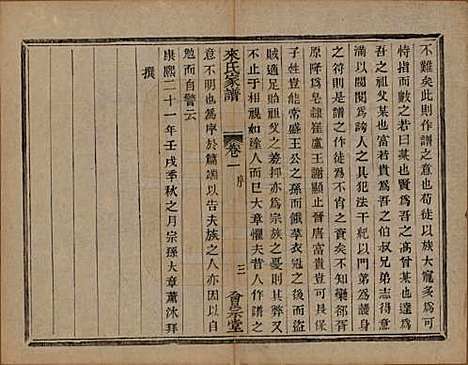 不難矣此則作譜之作也苟徒以族大寵多為可
恃指而數之若曰某也賢為吾之高曾某也達為
吾之祖父某也貴為吾之伯叔兄弟志得意
滿以閥閱為誇人之具犯法干紀以門第為護身
之符則是譜之作徒為不肖之資矣不知欒郤胥
原降為皂隸崔盧王謝顯止晉唐富貴可盡恃而
子姓豈能常盛王公之孫而餓莩衣冠之後而盜
賊適足貽祖父之羞抑亦為宗族之憂則其
不止於相視如塗人而已矣大章懼夫昔人作譜之
意不明也為序於篇端以告夫族之人亦因以自
勉而自警云
康熙二十一年壬戌季秋之月宗孫大章薰沐拜
撰
來氏家譜
卷一
序
三
會宗堂